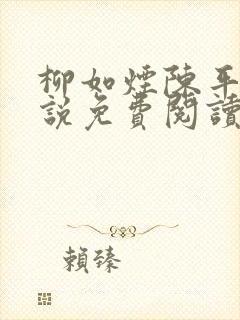 柳如煙陳平
說免費閱讀
賴臻